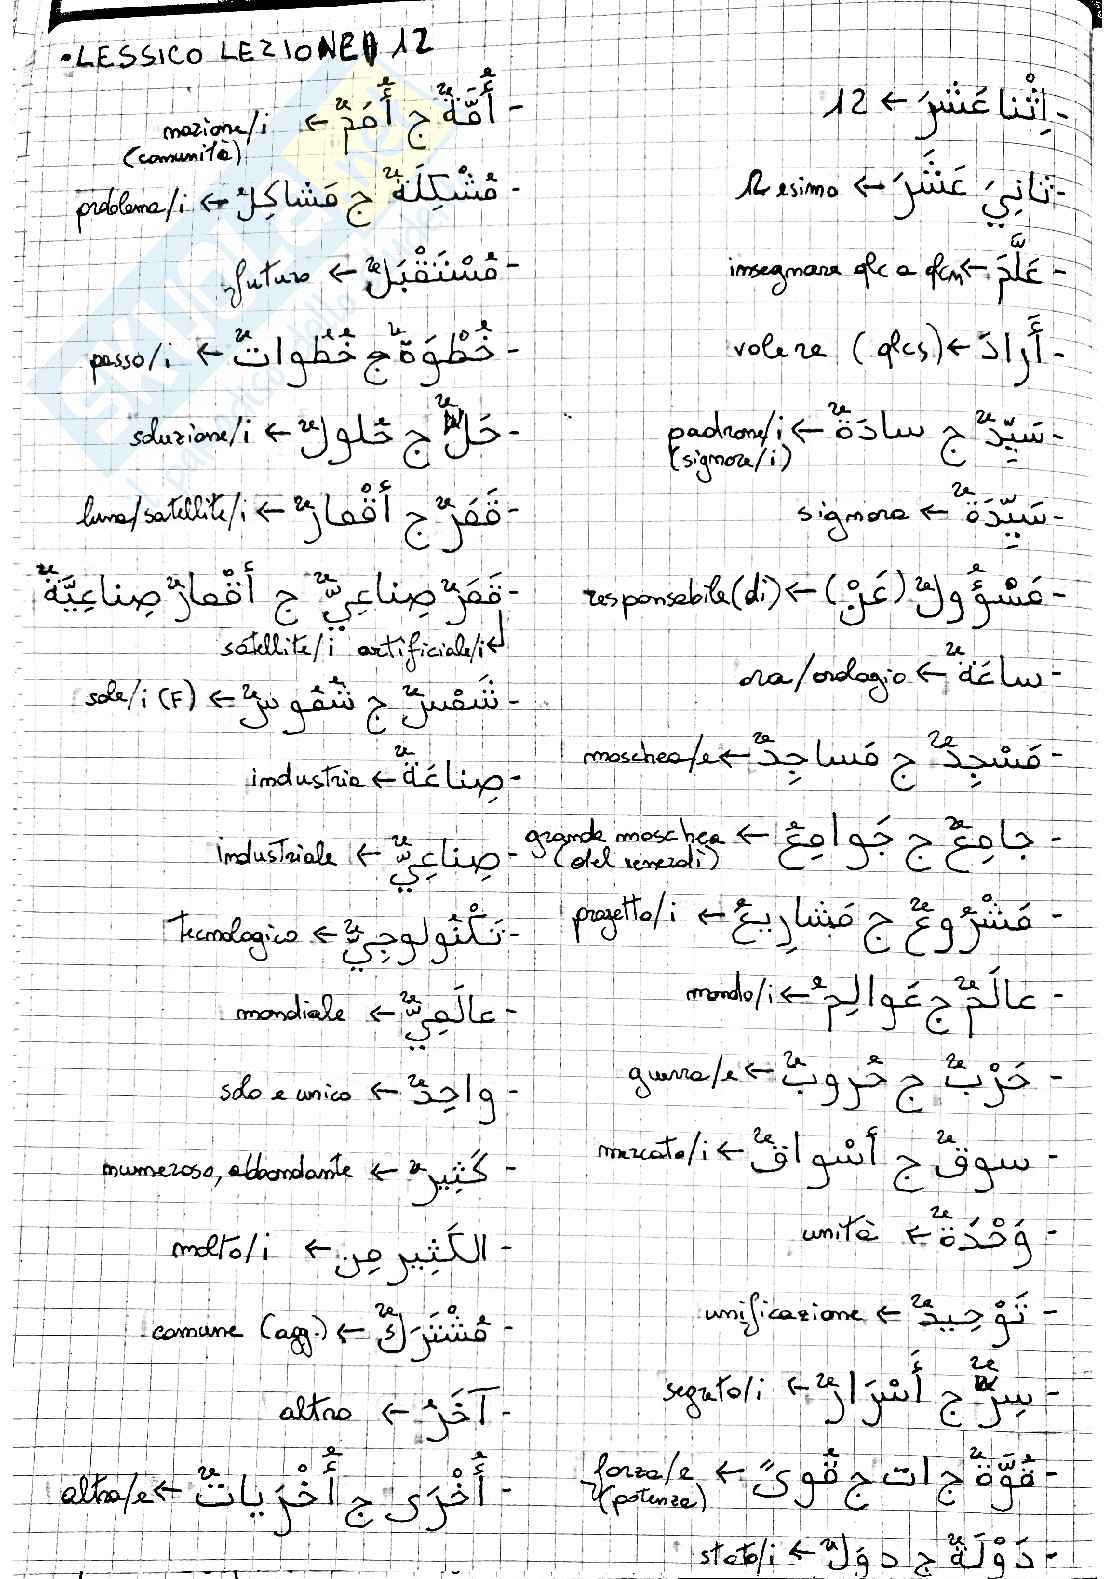 • LESSICO LEZIONE 12
- اِثْنا عَشَرَ ← 12
- ثانِيَ عَشَرَ ← 12esimo
- عَلَّمَ ← insegnare qlc a qlcn
- أَرادَ ← volere (qlcs)
- سَيِّدٌ ج سادَةٌ ← padrone/i
(signore/i)
- سَيِّدَةٌ ← signora
- مَسْؤُولٌ (عَنْ) ← responsabile (di)
- ساعَةٌ ← ora/orologio
- مَسْجِدٌ ج مَساجِدٌ ← moschea/e
- جامِعٌ ج جَوامِعُ ← grande moschea
(del venerdì)
- مَشْرُوعٌ ج مَشارِيعُ ← progetto/i
- عالَمٌ ج عَوالِمُ ← mondo/i
- حَرْبٌ ج حُروبٌ ← guerra/e
- سوقٌ ج أَسْواقٌ ← mercato/i
- وَحْدَةٌ ← unità
- تَوْحِيدٌ ← unificazione
- سِرٌّ ج أَسْرَارٌ ← segreto/i
- قُوَّةٌ ج ات ج قُوىً ← forza/e
(potenza)
- دَوْلَةٌ ج دوَلٌ ← stato/i
- أُمَّةٌ ج أُمَمٌ ← nazione/i
(comunità)
- مُشْكِلَةٌ ج مَشاكِلُ ← problema/i
- مُسْتَقْبَلٌ ← futuro
- خُطْوَةٌ ج خُطُواتٌ ← passo/i
- حَلٌّ ج حُلولٌ ← soluzione/i
- قَمَرٌ ج أَقْمارٌ ← luna/satellite/i
- قَمَرٌ صِناعِيٌّ ج أَقْمارٌ صِناعِيَّةٌ
satellite/i artificiale/i ↵
- شَمْسٌ ج شُمُوسٌ ← sole/i (F)
- صِناعَةٌ ← industria
- صِناعِيٌّ ← industriale
- تَكْنُولوجِيٌّ ← tecnologico
- عالَمِيٌّ ← mondiale
- واحِدٌ ← solo e unico
- كَثِيرٌ ← numeroso, abbondante
- الكَثِير مِن ← molto/i
- مُشْتَرَكٌ ← comune (agg.)
- آخَرُ ← altro
- أُخْرَى ج أُخْرَياتٌ ← altra/e